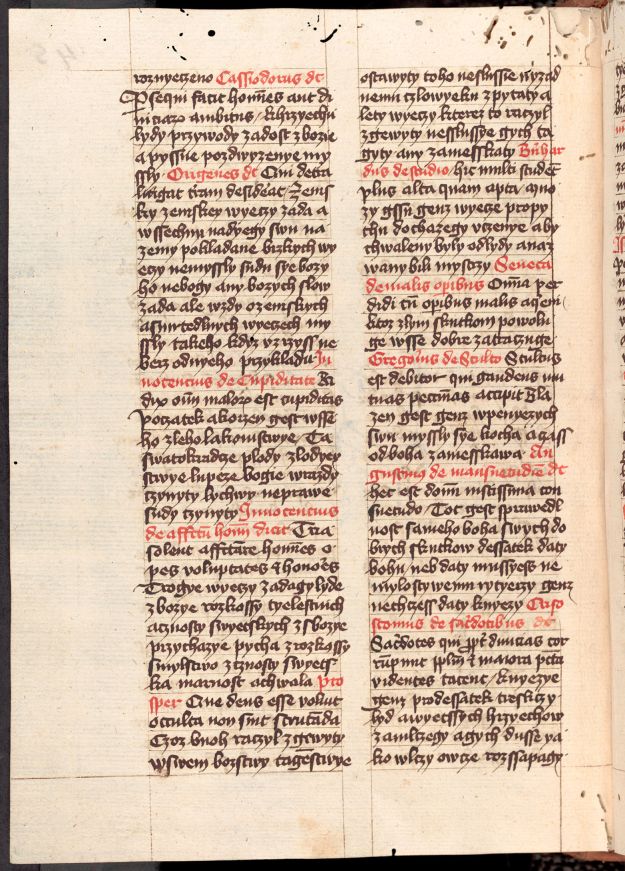 roznyeczeno Cassiodorus dt
Psequi facit homīes aut di
uiciaꝝ ambitus / k hrzyechu
lydy przywody zadost zbozie
a pyssne pozdwyzenye my
ssly Origenes dt Qui
litigat desiderat / Zems
ky zemskey wyeczy zada a
wssechnu nadyegy swu na
zemy pokladane bizkych wy
eczy nemyssly sudu sye bozy
ho nebogy any bozych slow
zada ale wzdy o zemskych
a smrtedlnych wyeczech my
ssly takeho kdyz vzrzyss ne
berz odnyeho przykladu In
nocencius de Cupiditate Ra
dix oīm maloꝝ est cupiditas
Poczatek a korzen gest wsse
ho zleho lakomstwye / Ta
swatokradze plody zlodyey
stwye lupeze bogie wrazdy
czynyty lychwy neprawe
sudy czynyty Innocencius
de affctu homī dicit Tria
solent affectare homīes o
pes voluptates ⁊ honōres
Trogye wyeczy zadagy lyde
zbozye rozkossy tyelestnich
a cznosty swyetskych z sbozye
przychazye pycha z rozkossy
smylstwo z cznosty swyets
ka marnost a chwala Pro
sper Que deus esse voluit
occulta non sunt scrutāda
Czoz buoh raczyl zgewyty
w swem bozstwy tagēstwye
ostawyty toho neslussie wzad
nemu czlowyeku zpytaty a
lety wyeczy kterez to raczyl
zgewyty neslussye gych ta
gyty any zamesskaty Bn̄har
dus de studio / hic multi studēt
plus alta quam apta / mno
zy gssu genz wyecze propy
chu dochazegy vczenye aby
chwaleny byly od lydy a naz
wany bili mystrzy Seneca
de malis opibus Om̄a per
didi cū opibus malis
ktoz zlym skutkom powolu
ge wsse dobre zatraczuge
Gregorius de Stulto Stultus
est debitor qui gaudens mu
tuas pecunias accipit Bla
zen gest genz w penyezych
swu myssly sye kocha a gass
od boha zamesskawa Au
gustinus de mansuetudine dt
hec est domī iustissima con
suetudo / Tot gest sprawedl
nost sameho boha swych do
brych skutkow dessatek daty
bohu neb daty mussyess ne
mylostywemu rytyerzy genz
nechczess daty knyezy Criso
stomus de sacdotibus dt
Sacdotes qui ꝓpt diuicias cor
ident tacent / knyezye
genz prodessatek tresktczy
lyd a wyetssych hrzyechow
zamlczegy a gych dusse ya
ko wlczy owcze rozssapagy